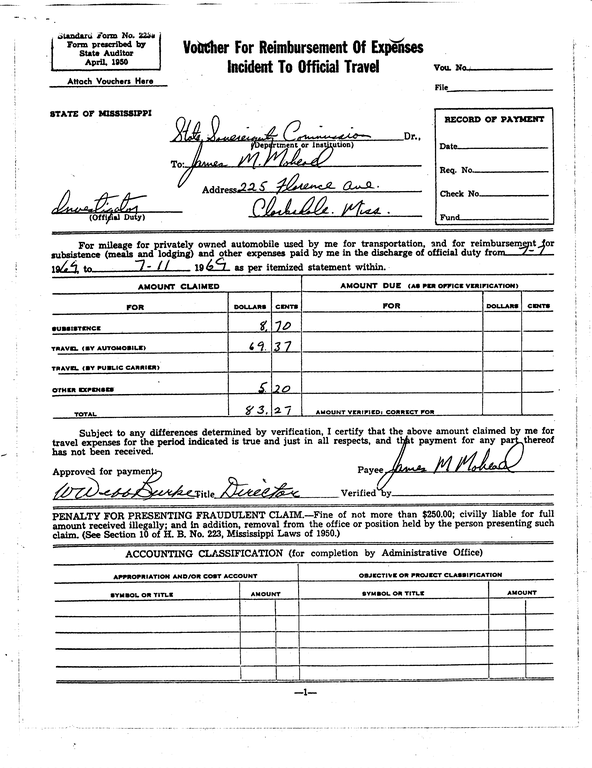 Standard Form No. 223a
Form prescribed by
State Auditor
April, 1950
Attach Vouchers Here
Voucher For Reimbursement Of Expenses
Incident To Official Travel
Vou. No.
File
STATE OF MISSISSIPPI
State Sovereignty Commission Dr.,
(Department or Institution)
To: James M. Mohead
Address 225 Florence Ave.
Clarksdale, Miss.
Investigator
(Official Duty)
RECORD OF PAYMENT
Date
Req. No.
Check No.
Fund
For mileage for privately owned automobile used by me for transportation, and for reimbursement for
subsistence (meals and lodging) and other expenses paid by me in the discharge of official duty from 7-7
1969, to 7-11 1969 as per itemized statement within.
AMOUNT CLAIMED
AMOUNT DUE (AS PER OFFICE VERIFICATION)
FOR DOLLARS CENTS FOR DOLLARS CENTS
SUBSISTENCE 8 70
TRAVEL (BY AUTOMOBILE) 69 37
TRAVEL (BY PUBLIC CARRIER)
OTHER EXPENSES 5 20
TOTAL 83 27 AMOUNT VERIFIED; CORRECT FOR
Subject to any differences determined by verification, I certify that the above amount claimed by me for
travel expenses for the period indicated is true and just in all respects, and that payment for any part thereof
has not been received.
Payee James M Mohead
Approved for payment:
W Webb Burke Title Director Verified by
PENALTY FOR PRESENTING FRAUDULENT CLAIM.—Fine of not more than $250.00; civilly liable for full
amount received illegally; and in addition, removal from the office or position held by the person presenting such
claim. (See Section 10 of H. B. No. 223, Mississippi Laws of 1950.)
ACCOUNTING CLASSIFICATION (for completion by Administrative Office)
APPROPRIATION AND/OR COST ACCOUNT OBJECTIVE OR PROJECT CLASSIFICATION
SYMBOL OR TITLE AMOUNT SYMBOL OR TITLE AMOUNT
—1—